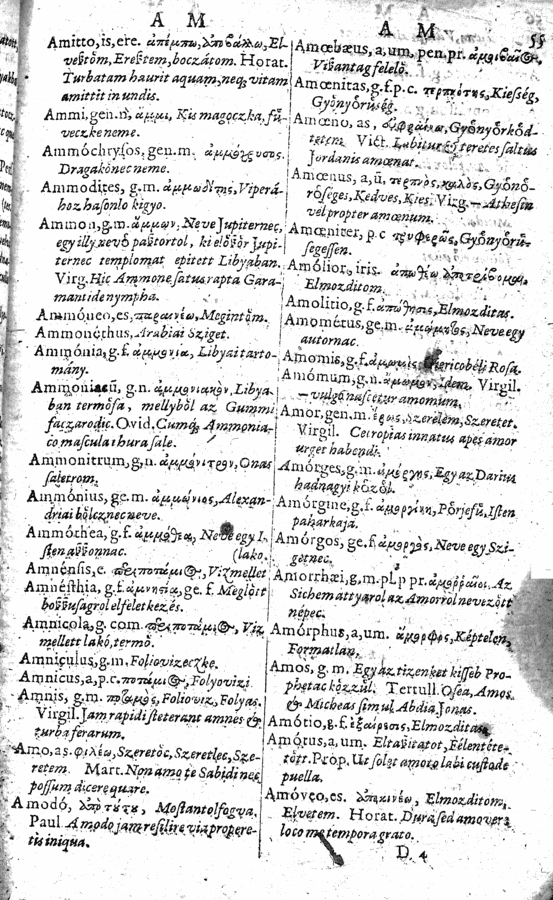 A M
Amitto, is, ere. ἀπέμπω, ἀποβάλλω, El-
vestöm, Erestem, boczátom. Horat.
Turbatam haurit aquam, neq; vitam
amittit in undis.
Ammi, gen. n. ἄμμι, Kis magoczka, fü-
veczke neme.
Ammóchrysos, gen. m.
Dragakönec neme.
Ammodites, g. m. ἀμμωδίτης, Viperá-
hoz hasonlo kigyo.
Ammon, g. m. ἄμμων, Neve Jupiternec,
egy illy nevö pastortol, ki elöször Jupi-
ternec templomat epitett Libyaban.
Virg. Hic Ammone satus rapta Gara-
mantide nympha.
Ammóneo, es, παραινέω, Megintöm.
Ammonóthus, Arabiai Sziget.
Ammónia, g. f. ἀμμονία, Libyai tarto-
mány.
Ammoniacū, g. n. ἀμμονιακὸν, Libya-
ban termösa, mellyböl az Gummi
faczarodic. Ovid. Cumq; Ammonia-
co mascula thura sale.
Ammonitrum, g. n. ἀμμόνιτρον, Onas
saletrom.
Ammónius, ge. m. ἀμμώνιος, Alexan-
driai bölcznec neve.
Ammóthea, g. f. Neve egy I-
sten asszonnac. (lako.
Amnēnsis, e. Viz mellet
Amnésthia, g. f. ἀμνηστία, ge. f. Meglött
bosszusagrol elfeletkezés.
Amnicola, g. com. Viz
mellett lakó, termö.
Amniculus, g. m, Folio vizeczke.
Amnicus, a, p. c. Folyovizi.
Amnis, g. m. ποταμὸς, Folio viz, Folyas.
Virgil. Jam rapidi steterant amnes &
turba ferarum.
Amo, as. φιλέω, Szeretöc, Szeretlec, Sze-
retem. Mart. Non amo te Sabidi nec
possum dicere quare.
Amodó, Mostantol fogva.
Paul. A modo jam resilire via propere-
tis iniqua.
A M 55
Amœbæus, a, um, pen. pr.
Vissantag felelö.
Amœnitas, g. f. p. c. τερπνότης, Kiesség,
Gyönyörüség.
Amœno, as, Gyönyörköd-
tetem. Vict. Labitur & teretes saltus
Jordanis amœnat.
Amœnus, a, ū, τερπνὸς, καλὸς, Gyönyö-
röséges, Kedves, Kies. Virg. — Athesin
vel propter amœnum.
Amœniter, p. c Gyönyörü-
segessen.
Amólior, iris.
Elmozditom.
Amolitio, g. f. Elmozditas.
Amométus, ge. m. Neve egy
autornac.
Amomis, g. f. ἀμωμὶς, Hiericobéli Rosa.
Amómum, g. n. ἄμωμον, Idem. Virgil.
— vulgo nascetur amomum.
Amor, gen. m. ἔρως, Szerelem, Szeretet.
Virgil. Cecropias innatus apes amor
urget habendi.
Amórges, g. m. ἀμόργης, Egy az Darius
hadnagyi közöl.
Amórgine, g. f. ἀμοργίνη, Pörjefü, Isten
paharkaja.
Amórgos, ge. f. ἀμοργὸς, Neve egy Szi-
getnec.
Amorrhæi, g. m. pl. p pr. Az
Sichem attyarol az Amorrol nevezött
népec.
Amórphus, a, um. ἄμορφος, Képtelen,
Formatlan.
Amos, g. m. Egy az tizenket kisseb Pro-
phetac közzül. Tertull. Osea, Amos.
& Micheas simul Abdia Jonas.
Amótio, g. f. ἐξαίρεσις, Elmozditas.
Amótus, a, um. Eltavitatot, Félentéte-
tött. Prop. Ut solet amoto labi custode
puella.
Amóveo, es. ἀποκινέω, Elmozditom,
Elvetem. Horat. Dura sed amovere
loco me tempora grato.
D 4